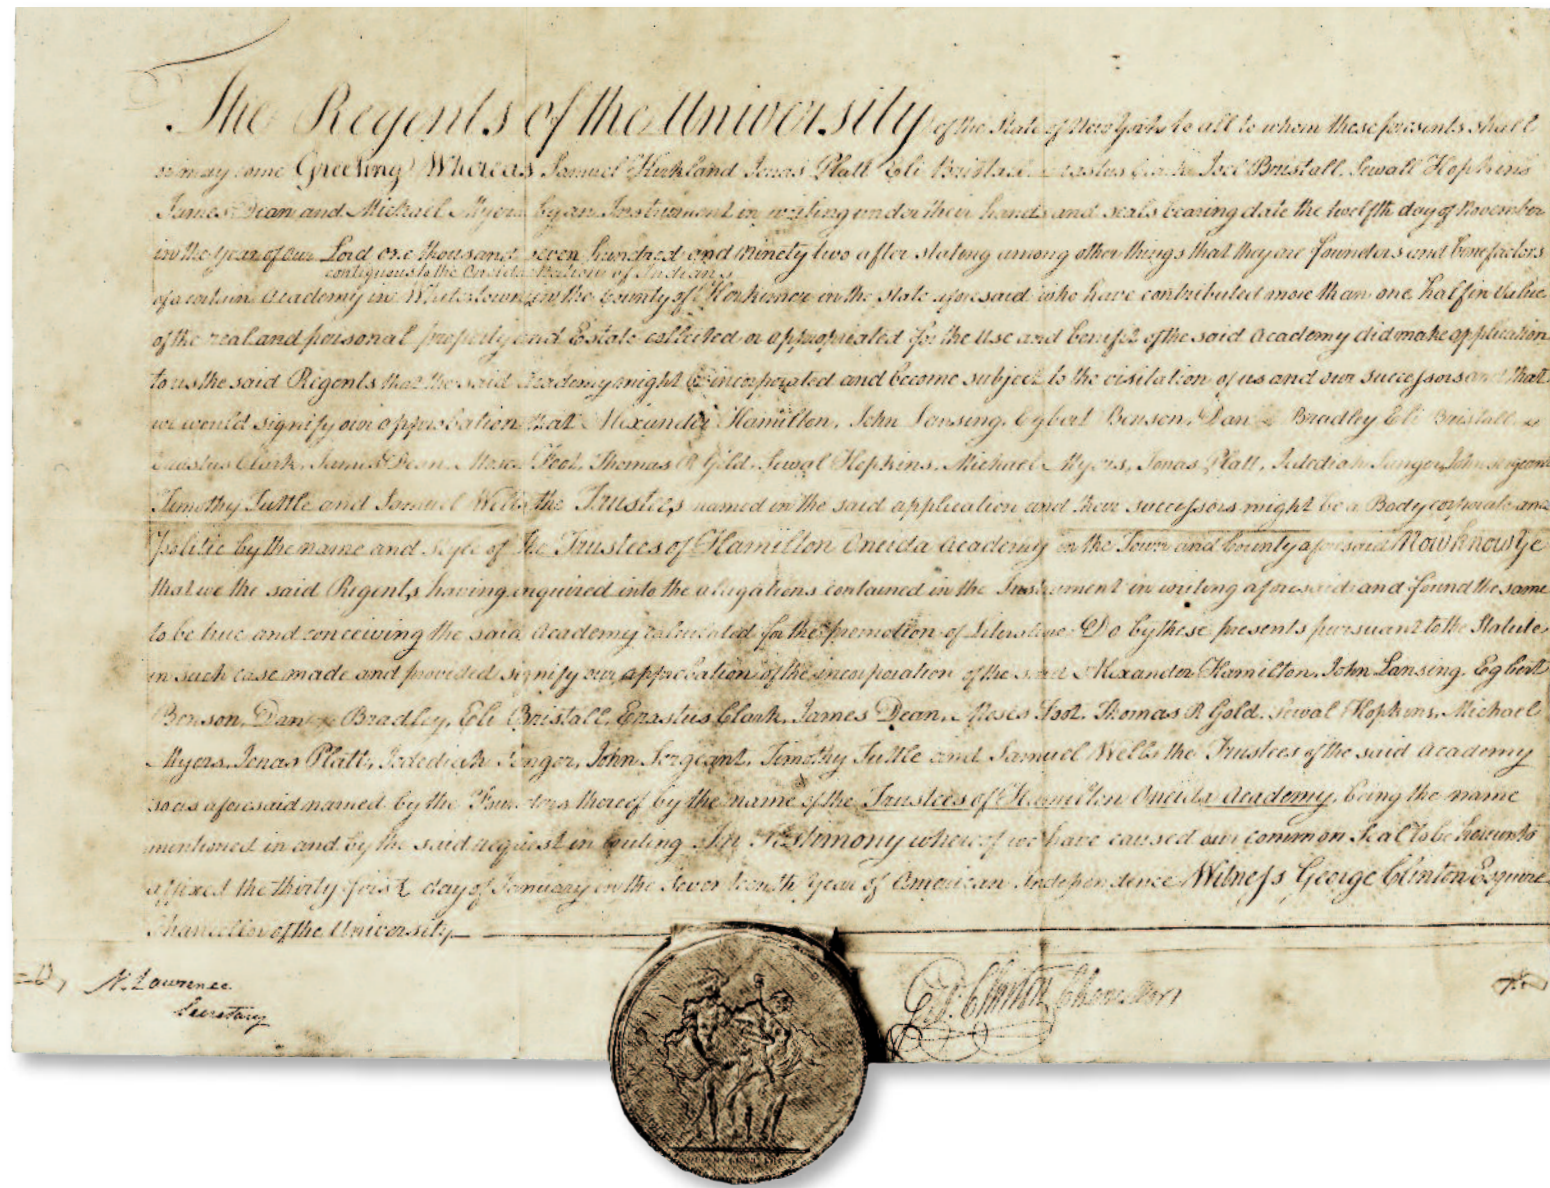 The Regents of the University of the State of New York to all to whom these presents shall
or may come Greeting Whereas Samuel Kirkland Jonas Platt Eli Bristall Erastus Clark Joel Bristall, Sewall Hopkins
James Dean and Michael Myers by an Instrument in writing under their hands and seals bearing date the twelfth day of November
in the year of our Lord one thousand seven hundred and ninety two after stating among other things that they are founders and benefactors
contiguous to the Oneida Nation of Indians
of a certain Academy in Whitestown in the County of Herkemer in the state aforesaid who have contributed more than one half in value
of the real and personal property and Estate collected or appropriated for the Use and benefit of the said Academy did make application
to us the said Regents that the said Academy might be incorporated and become subject to the visitation of us and our successors and that
we would signify our approbation that Alexander Hamilton, John Lansing, Egbert Benson, Dan Bradley Eli Bristall
Erastus Clark, James Dean, Moses Foot, Thomas R Gold, Sewal Hopkins, Michael Myers, Jonas Platt, Jedediah Sanger, John Sergeant
Timothy Tuttle and Samuel Wells the Trustees named in the said application and their successors might be a Body corporate and
Politic by the name and style of The Trustees of Hamilton Oneida Academy in the Town and County aforesaid Now know Ye
that we the said Regents having enquired into the allegations contained in the Instrument in writing aforesaid and found the same
to be true and conceiving the said Academy calculated for the promotion of Literature Do by these presents pursuant to the Statute
in such case made and provided signify our approbation of the incorporation of the said Alexander Hamilton, John Lansing, Egbert
Benson, Dan Bradley, Eli Bristall, Erastus Clark, James Dean, Moses Foot, Thomas R Gold, Sewal Hopkins, Michael
Myers, Jonas Platt, Jedediah Sanger, John Sergeant, Timothy Tuttle and Samuel Wells the Trustees of the said Academy
so as aforesaid named by the Founders thereof by the name of the Trustees of Hamilton Oneida Academy, being the name
mentioned in and by the said request in writing In Testimony whereof we have caused our common Seal to be hereunto
affixed the thirty first day of January in the Seventeenth Year of American Independence Witness George Clinton Esquire
Chancellor of the University
N. Lawrence
Secretary
Geo. Clinton Chancellor